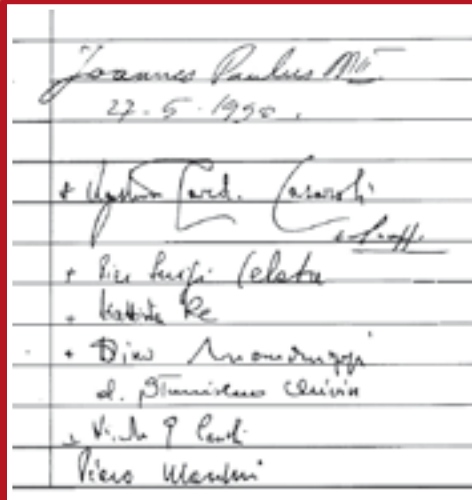 Joannes Paulus PP II
27-5-1990.
+ Agostino Card. Casaroli
+ Pier Luigi Celata
+ Battista Re
+ Dino Monduzzi
d. Stanislaus
Piero Marini